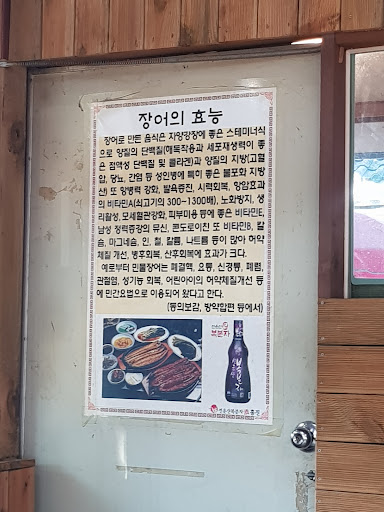 장어의 효능
장어로 만든 음식은 자양강장에 좋은 스테미너식
으로 양질의 단백질(해독작용과 세포재생력이 좋
은 점액성 단백질 및 콜라겐)과 양질의 지방(고혈
압, 당뇨, 간염 등 성인병에 특히 좋은 불포화 지방
산) 또 양병력 강화, 발육증진, 시력회복, 항암효과
의 비타민A(쇠고기의 300~1300배), 노화방지, 생
리활성, 모세혈관강화, 피부미용 등에 좋은 비타민E,
남성 정력증강의 뮤신, 콘드로이친 또 비타민B, 칼
슘, 마그네슘, 인, 철, 칼륨, 나트륨 등이 많아 허약
체질 개선, 병후회복, 산후회복에 효과가 크다.
예로부터 민물장어는 폐결핵, 요통, 신경통, 폐렴,
관절염, 성기능 회복, 어린아이의 허약체질개선 등
에 민간요법으로 이용되어 왔다고 한다.
(동의보감, 방약합편 등에서)
복분자